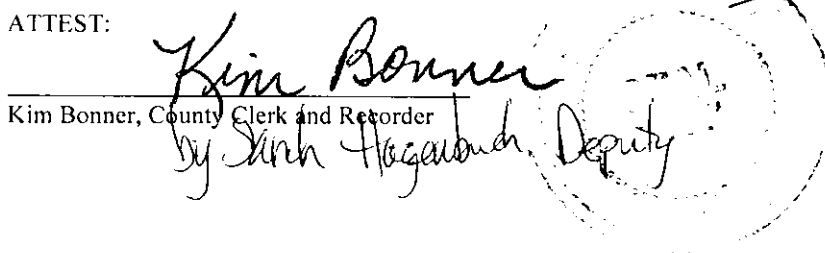 ATTEST:
Kim Bonner
Kim Bonner, County Clerk and Recorder
by Sarah Hagenbuch, Deputy